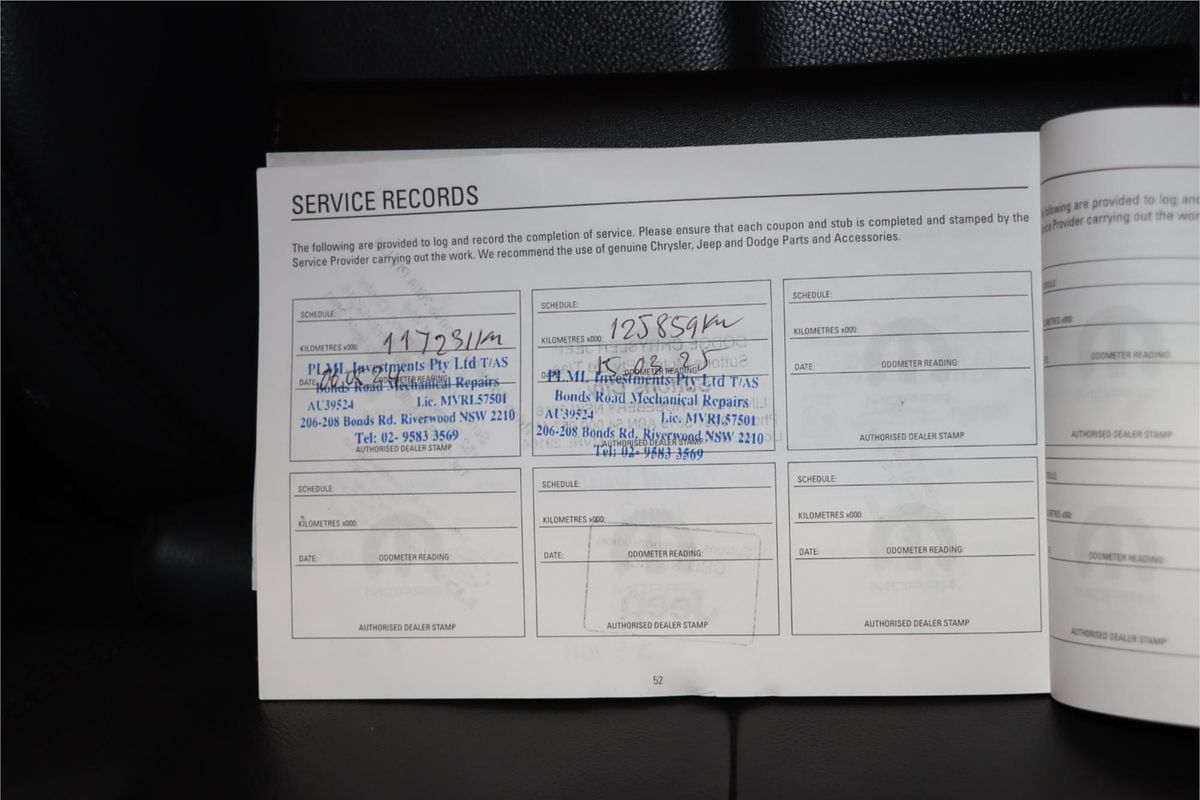 SERVICE RECORDS
The following are provided to log and record the completion of service. Please ensure that each coupon and stub is completed and stamped by the
Service Provider carrying out the work. We recommend the use of genuine Chrysler, Jeep and Dodge Parts and Accessories.
SCHEDULE:
KILOMETRES x000: 117231km
DATE: ODOMETER READING:
PLML Investments Pty Ltd T/AS
Bonds Road Mechanical Repairs
AU39524 Lic. MVRL57501
206-208 Bonds Rd. Riverwood NSW 2210
Tel: 02- 9583 3569
AUTHORISED DEALER STAMP
SCHEDULE:
KILOMETRES x000: 125859km
DATE: 15.03.25 ODOMETER READING:
PLML Investments Pty Ltd T/AS
Bonds Road Mechanical Repairs
AU39524 Lic. MVRL57501
206-208 Bonds Rd. Riverwood NSW 2210
AUTHORISED DEALER STAMP
Tel: 02- 9583 3569
SCHEDULE:
KILOMETRES x000:
DATE: ODOMETER READING:
AUTHORISED DEALER STAMP
SCHEDULE:
KILOMETRES x000:
DATE: ODOMETER READING:
AUTHORISED DEALER STAMP
SCHEDULE:
KILOMETRES x000:
DATE: ODOMETER READING:
AUTHORISED DEALER STAMP
SCHEDULE:
KILOMETRES x000:
DATE: ODOMETER READING:
AUTHORISED DEALER STAMP
52
following are provided to log and
Provider carrying out the
ODOMETER READING:
AUTHORISED DEALER STAMP
ODOMETER READING:
AUTHORISED DEALER STAMP